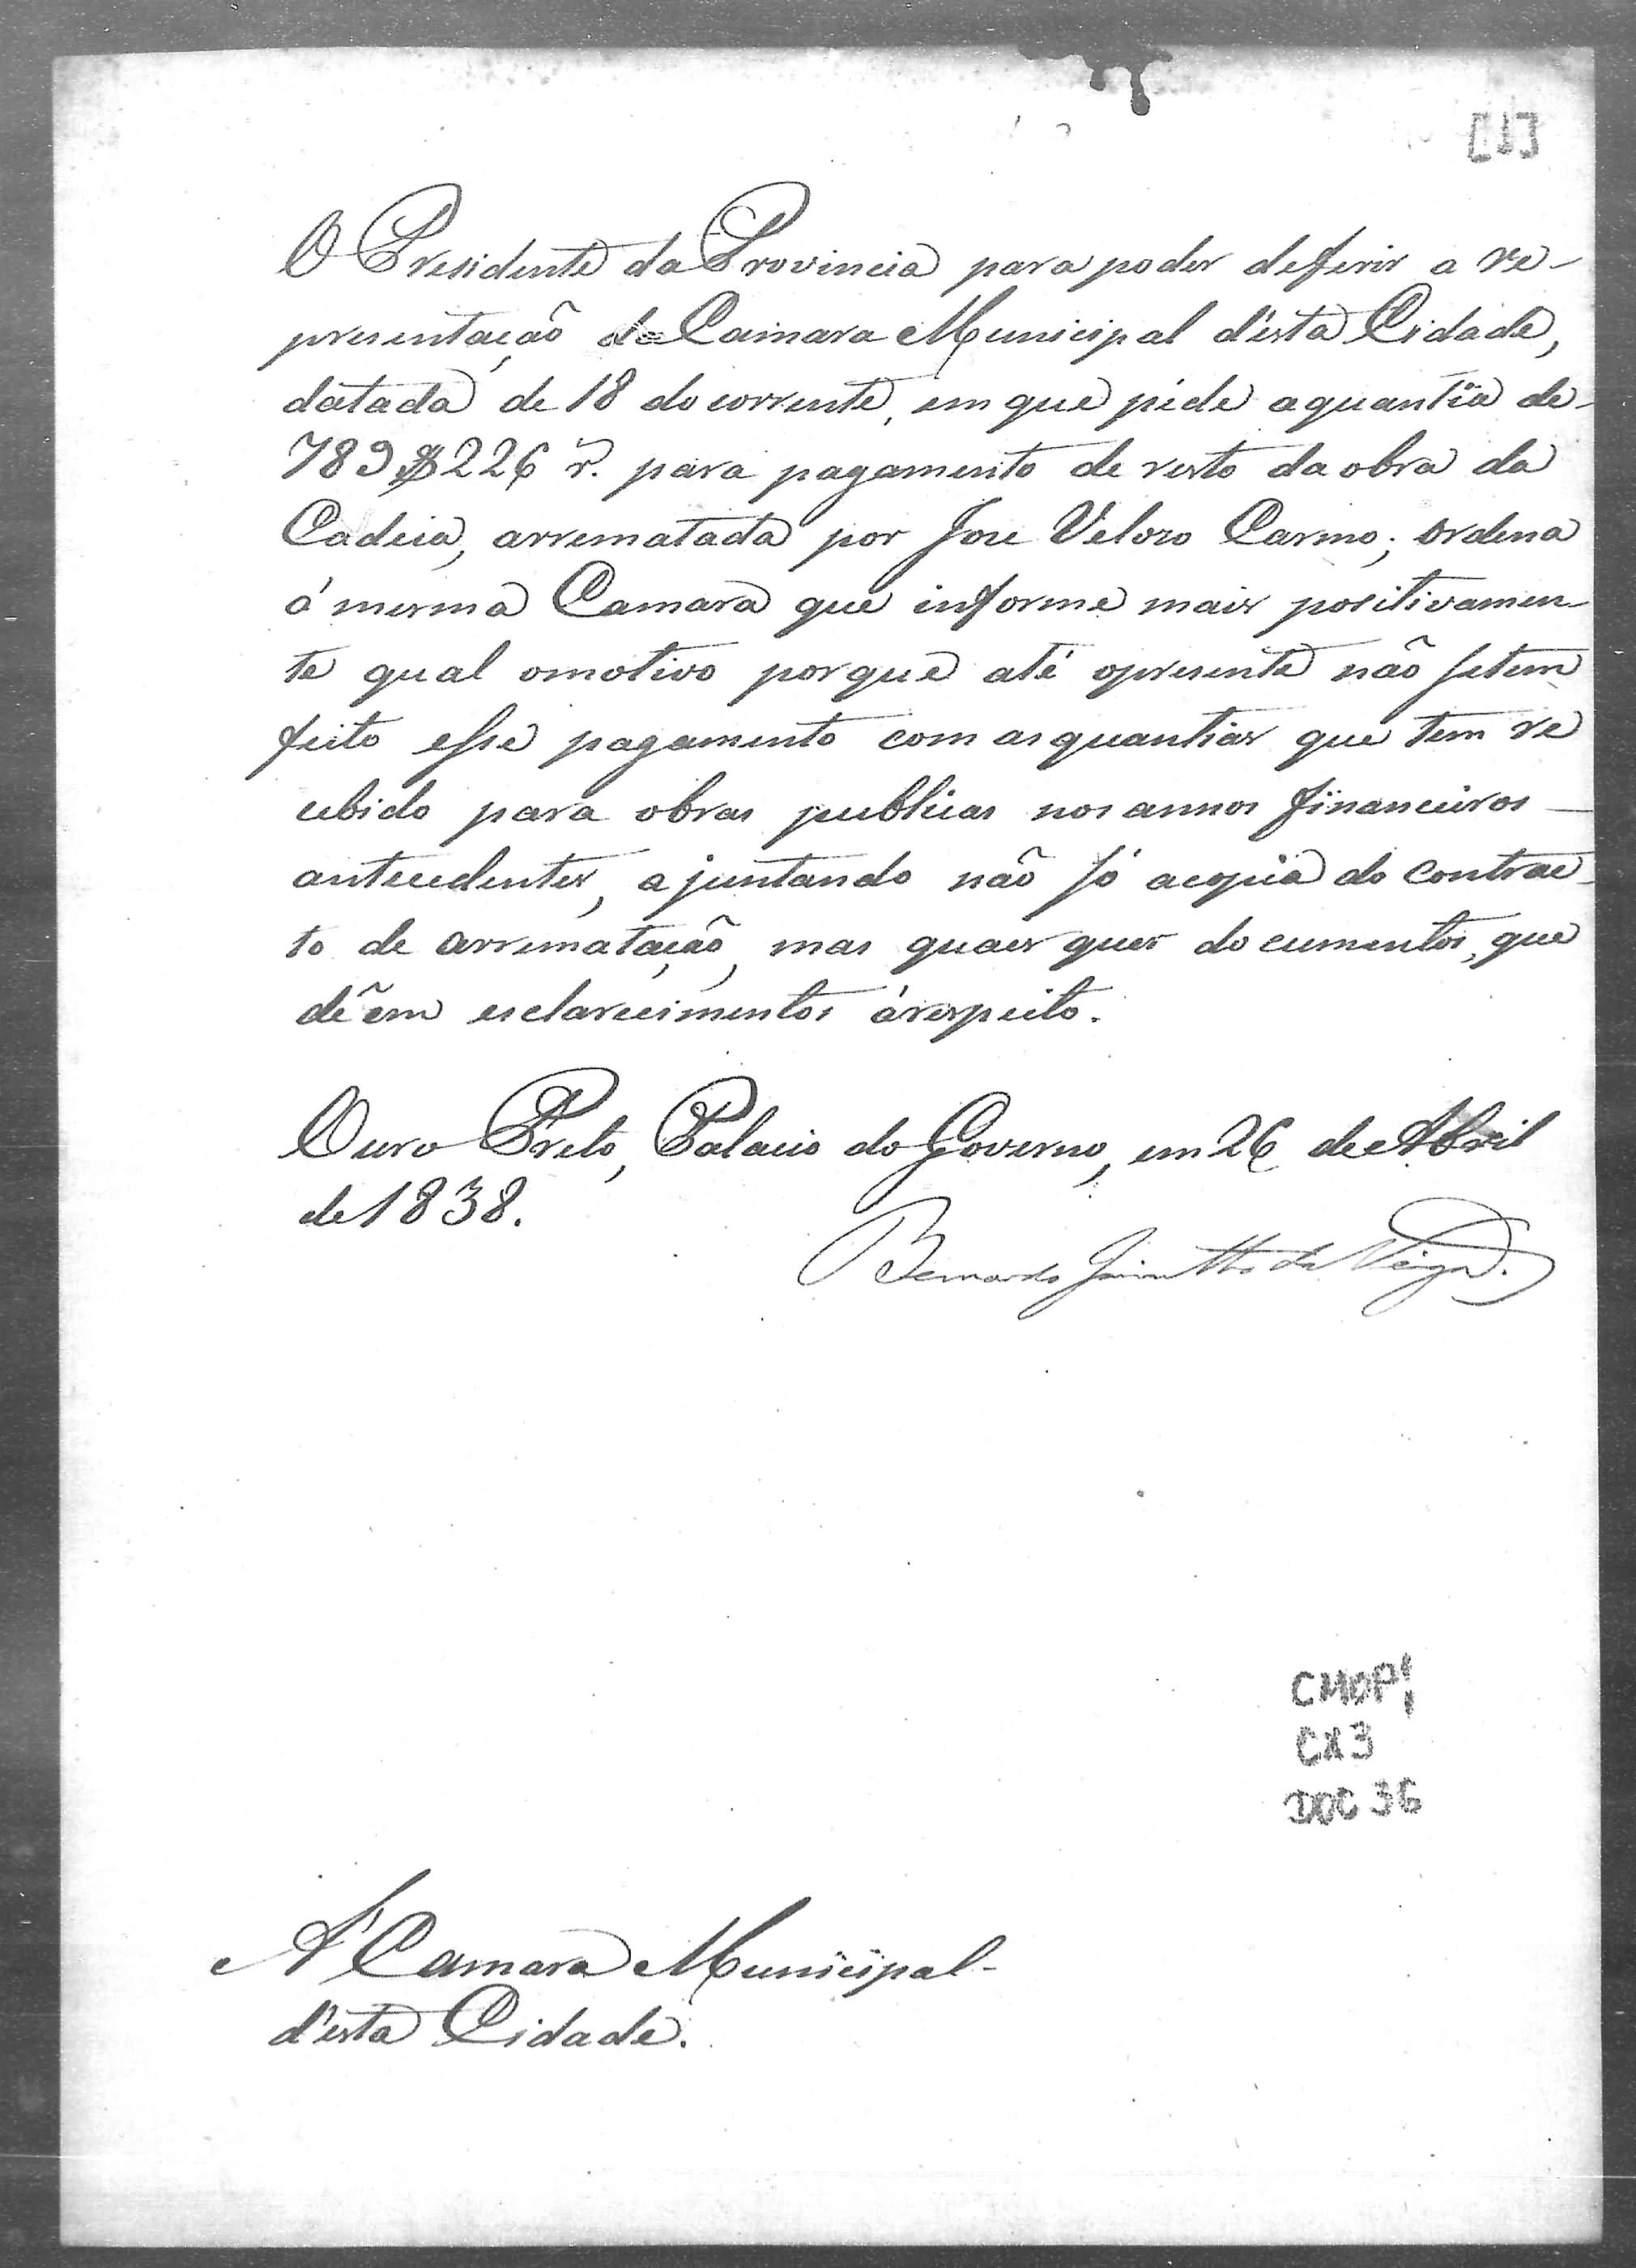 [1]
O Presidente da Provincia para poder deferir a re-
presentação da Camara Municipal d'esta Cidade,
datada de 18 do corrente, em que péde aquantia de
789$226 r.ˢ para pagamento de resto da obra da
Cadeia, arrematada por Jose Velozo Carmo; ordena
á mesma Camara que informe mais positivamen-
te qual omotivo porque até opresente não setem
feito esse pagamento com asquantias que tem re
cebido para obras publicas nos annos financeiros
antecedentes, ajuntando não só acopia do contrac-
to de arrematação, mas quaes quer documentos, que
dêem esclarecimentos árespeito.
Ouro Preto, Palacio do Governo, em 26 de Abril
de 1838.
Bernardo Jacintho da Veiga.
CMOP!
CX3
DOC 36
A' Camara Municipal
d'esta Cidade.